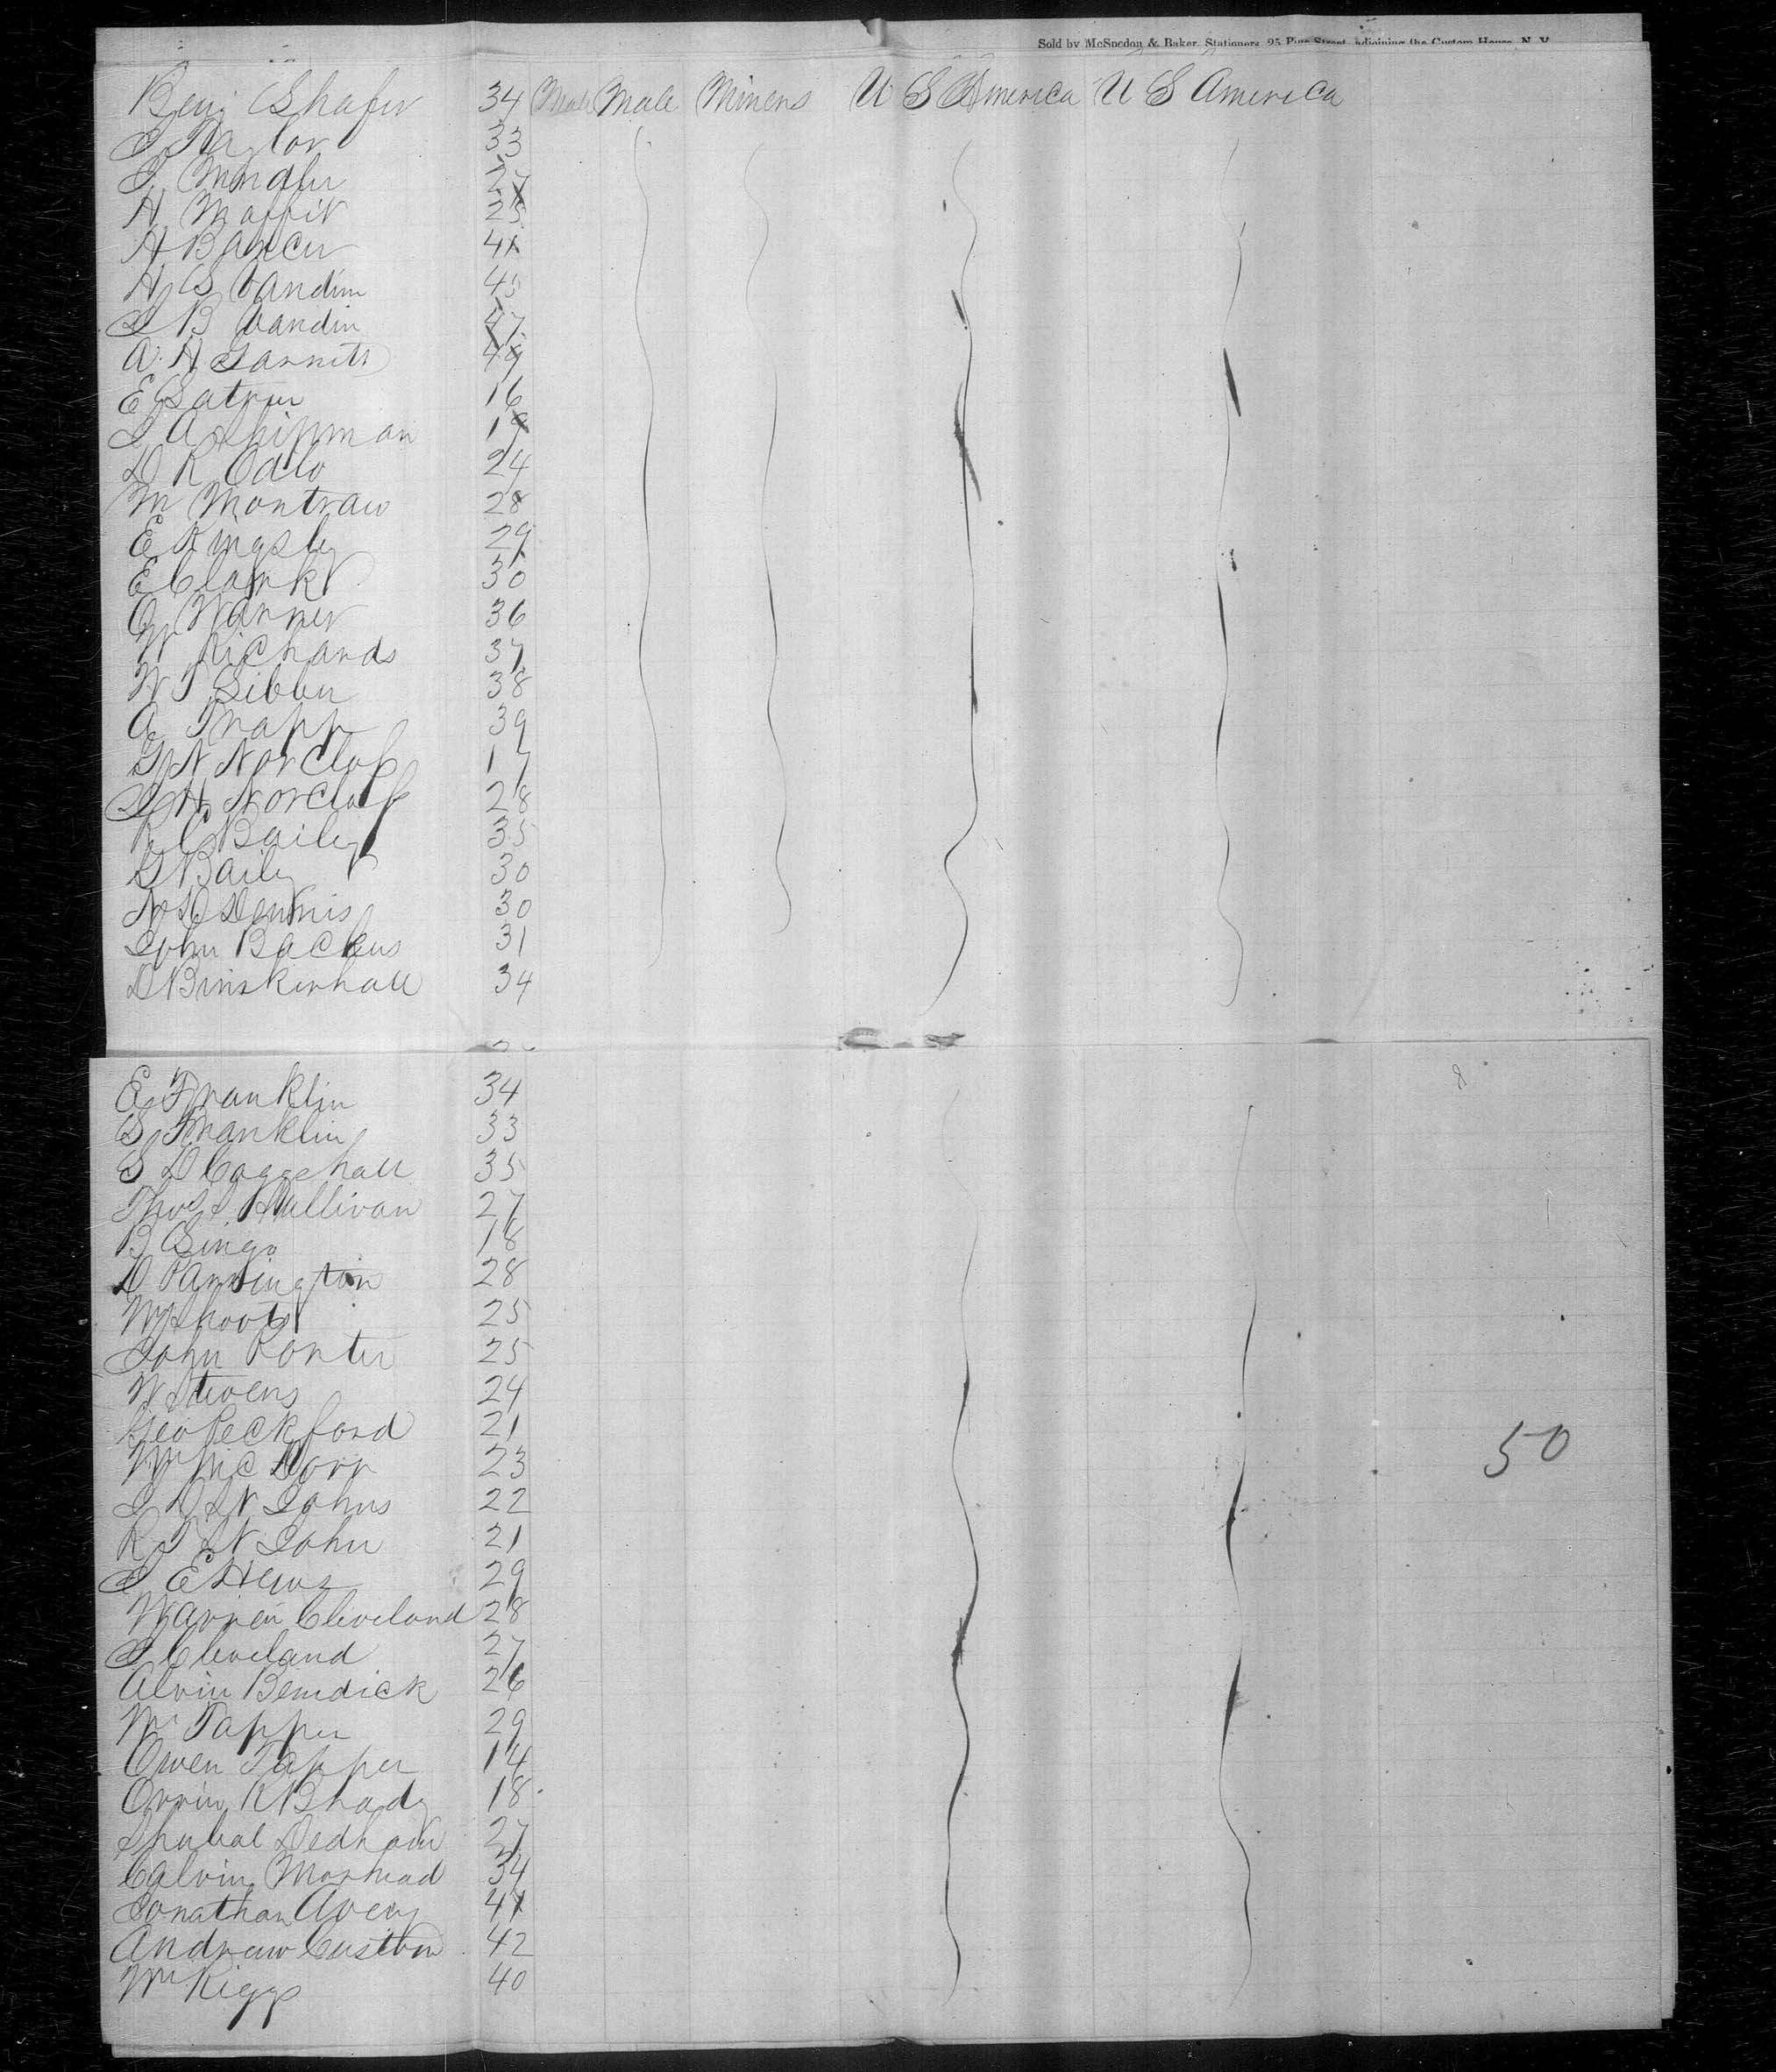 Sold by McSpedon & Baker, Stationers, 25 Pine Street, adjoining the Custom House, N. Y.
Benj Shafer 34 Male Male Miners U S America U S America
J Taylor 33
27
H 25
H 41
H S Vandim 45
B Vandin 47
A. H Garnitt 49
E 16
J A Shipman 19
D R 24
M Montraw 28
E Kingsly 29
E Clark 30
O Warner 36
W Richards 37
W T 38
A Trapp 39
G N 17
H 28
R C Baily 35
G Baily 30
Dennis 30
John Backus 31
D Brinskerhall 34
E Franklin 34
S Franklin 33
S D Coggshall 35
Thos S Sullivan 27
B 18
D 28
W Shoots 25
John Porter 25
W Stevens 24
Geo Peckford 21
Wm Mc Dorr 23
J D St Johns 22
R T St John 21
J E 29
Warren Cleveland 28
J Cleveland 27
Alvin Benidick 26
Wm Tapper 29
Owen Tapper 14
Orrin K Bhady 18
Shubal Dedham 27
Calvin Morhead 34
Jonathan Avery 41
Andrew Custom 42
Wm Riggs 40
50